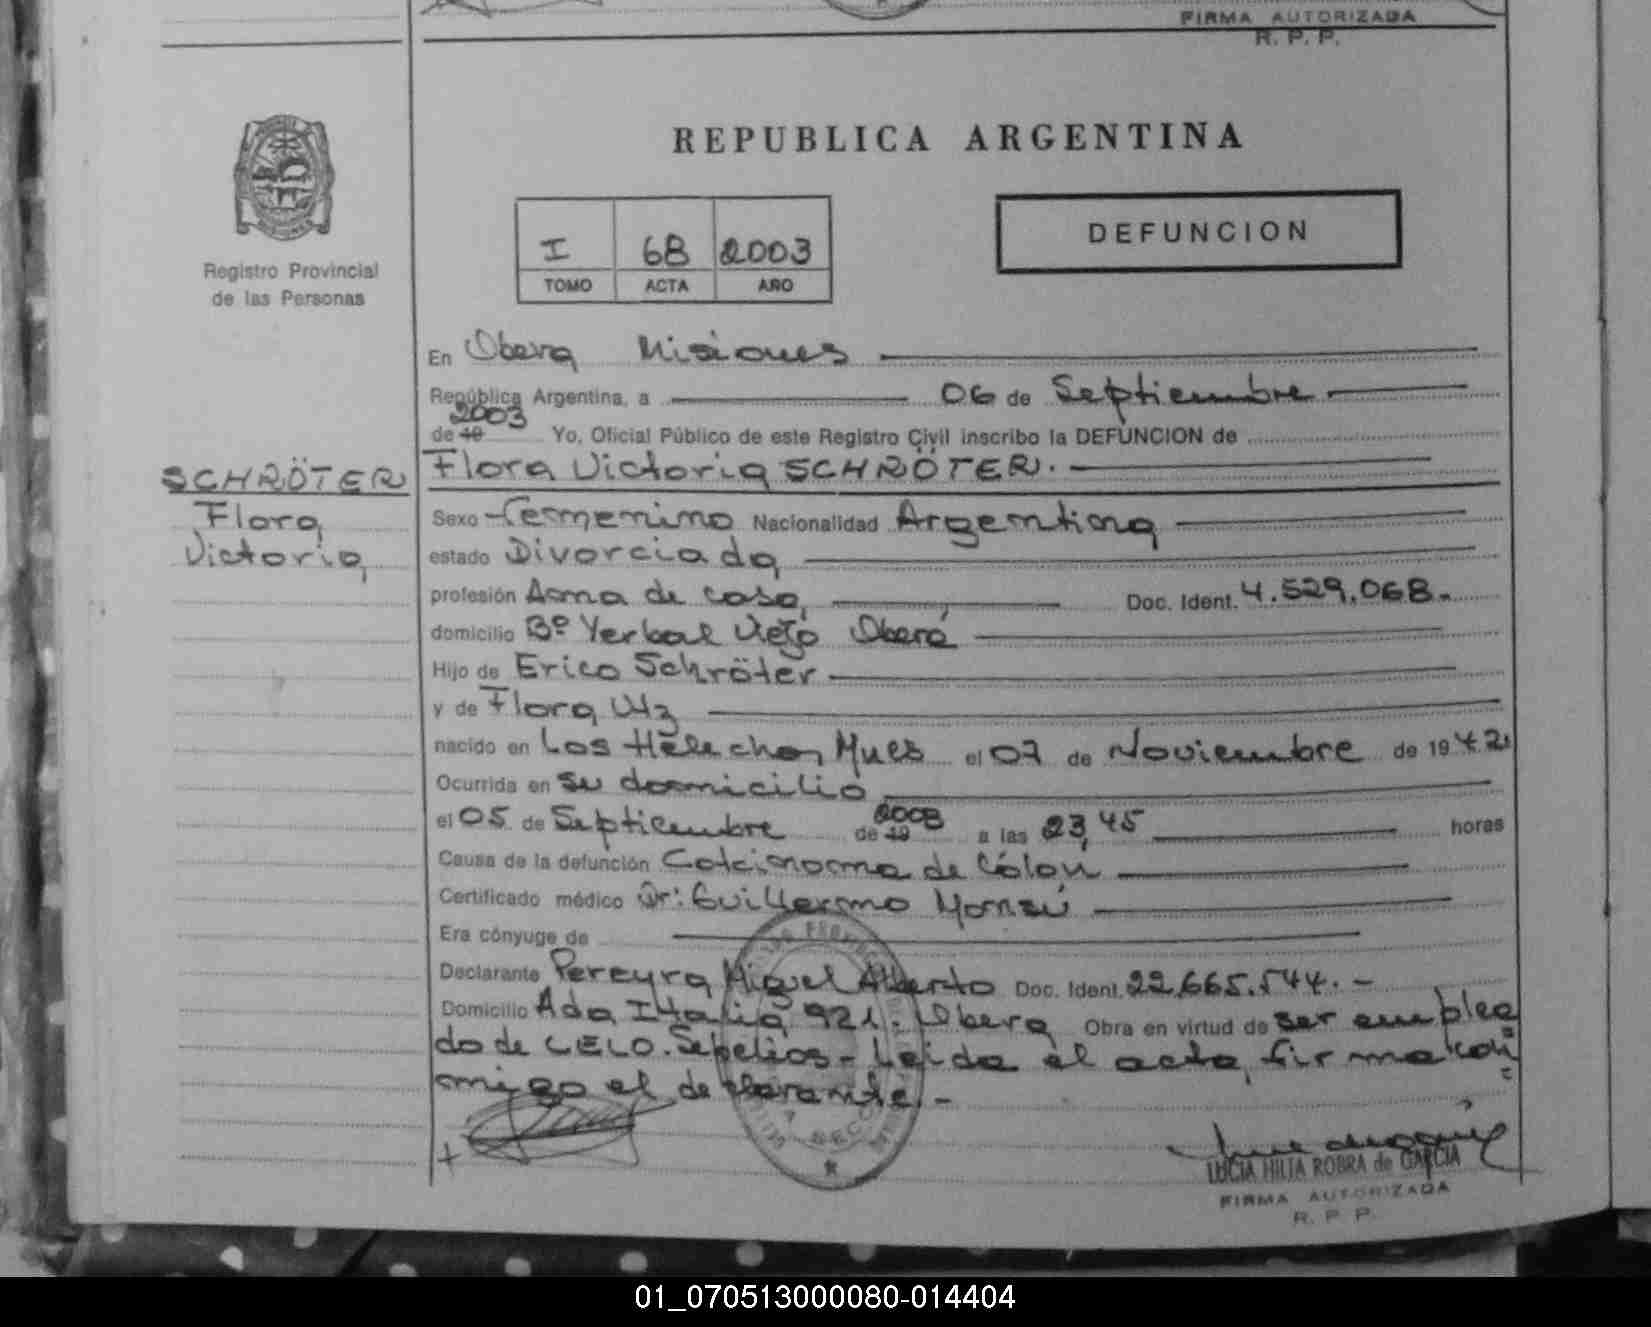 FIRMA AUTORIZADA
R. P. P.
REPUBLICA ARGENTINA
DEFUNCION
I 68 2003
TOMO ACTA AÑO
Registro Provincial
de las Personas
En Obera Misiones
República Argentina, a 06 de Septiembre
2003
de 19 Yo, Oficial Público de este Registro Civil inscribo la DEFUNCION de
SCHRÖTER
Flora
Victoria
Flora Victoria SCHRÖTER.
Sexo Femenino Nacionalidad Argentina
estado Divorciada
profesión Ama de casa, Doc. Ident. 4.529.068.-
domicilio Bº Yerbal Viejo Oberá
Hijo de Erico Schröter
y de Flora Utz
nacido en Los Helechos, Mnes el 07 de Noviembre de 1942
Ocurrida en su domicilio
2003
el 05 de Septiembre de 19 a las 23,45 horas
Causa de la defunción Carcinoma de Cólon
Certificado médico Dr: Guillermo
Era cónyuge de
Declarante Pereyra Miguel Alberto Doc. Ident. 22.665.544.-
Domicilio Avda Italia 921. Obera Obra en virtud de ser emplea
do de CELO. Sepelios - Leida el acta, firma con
migo el declarante.-
LUCIA HILIA ROBRA de GARCIA
FIRMA AUTORIZADA
R. P. P.
01_070513000080-014404